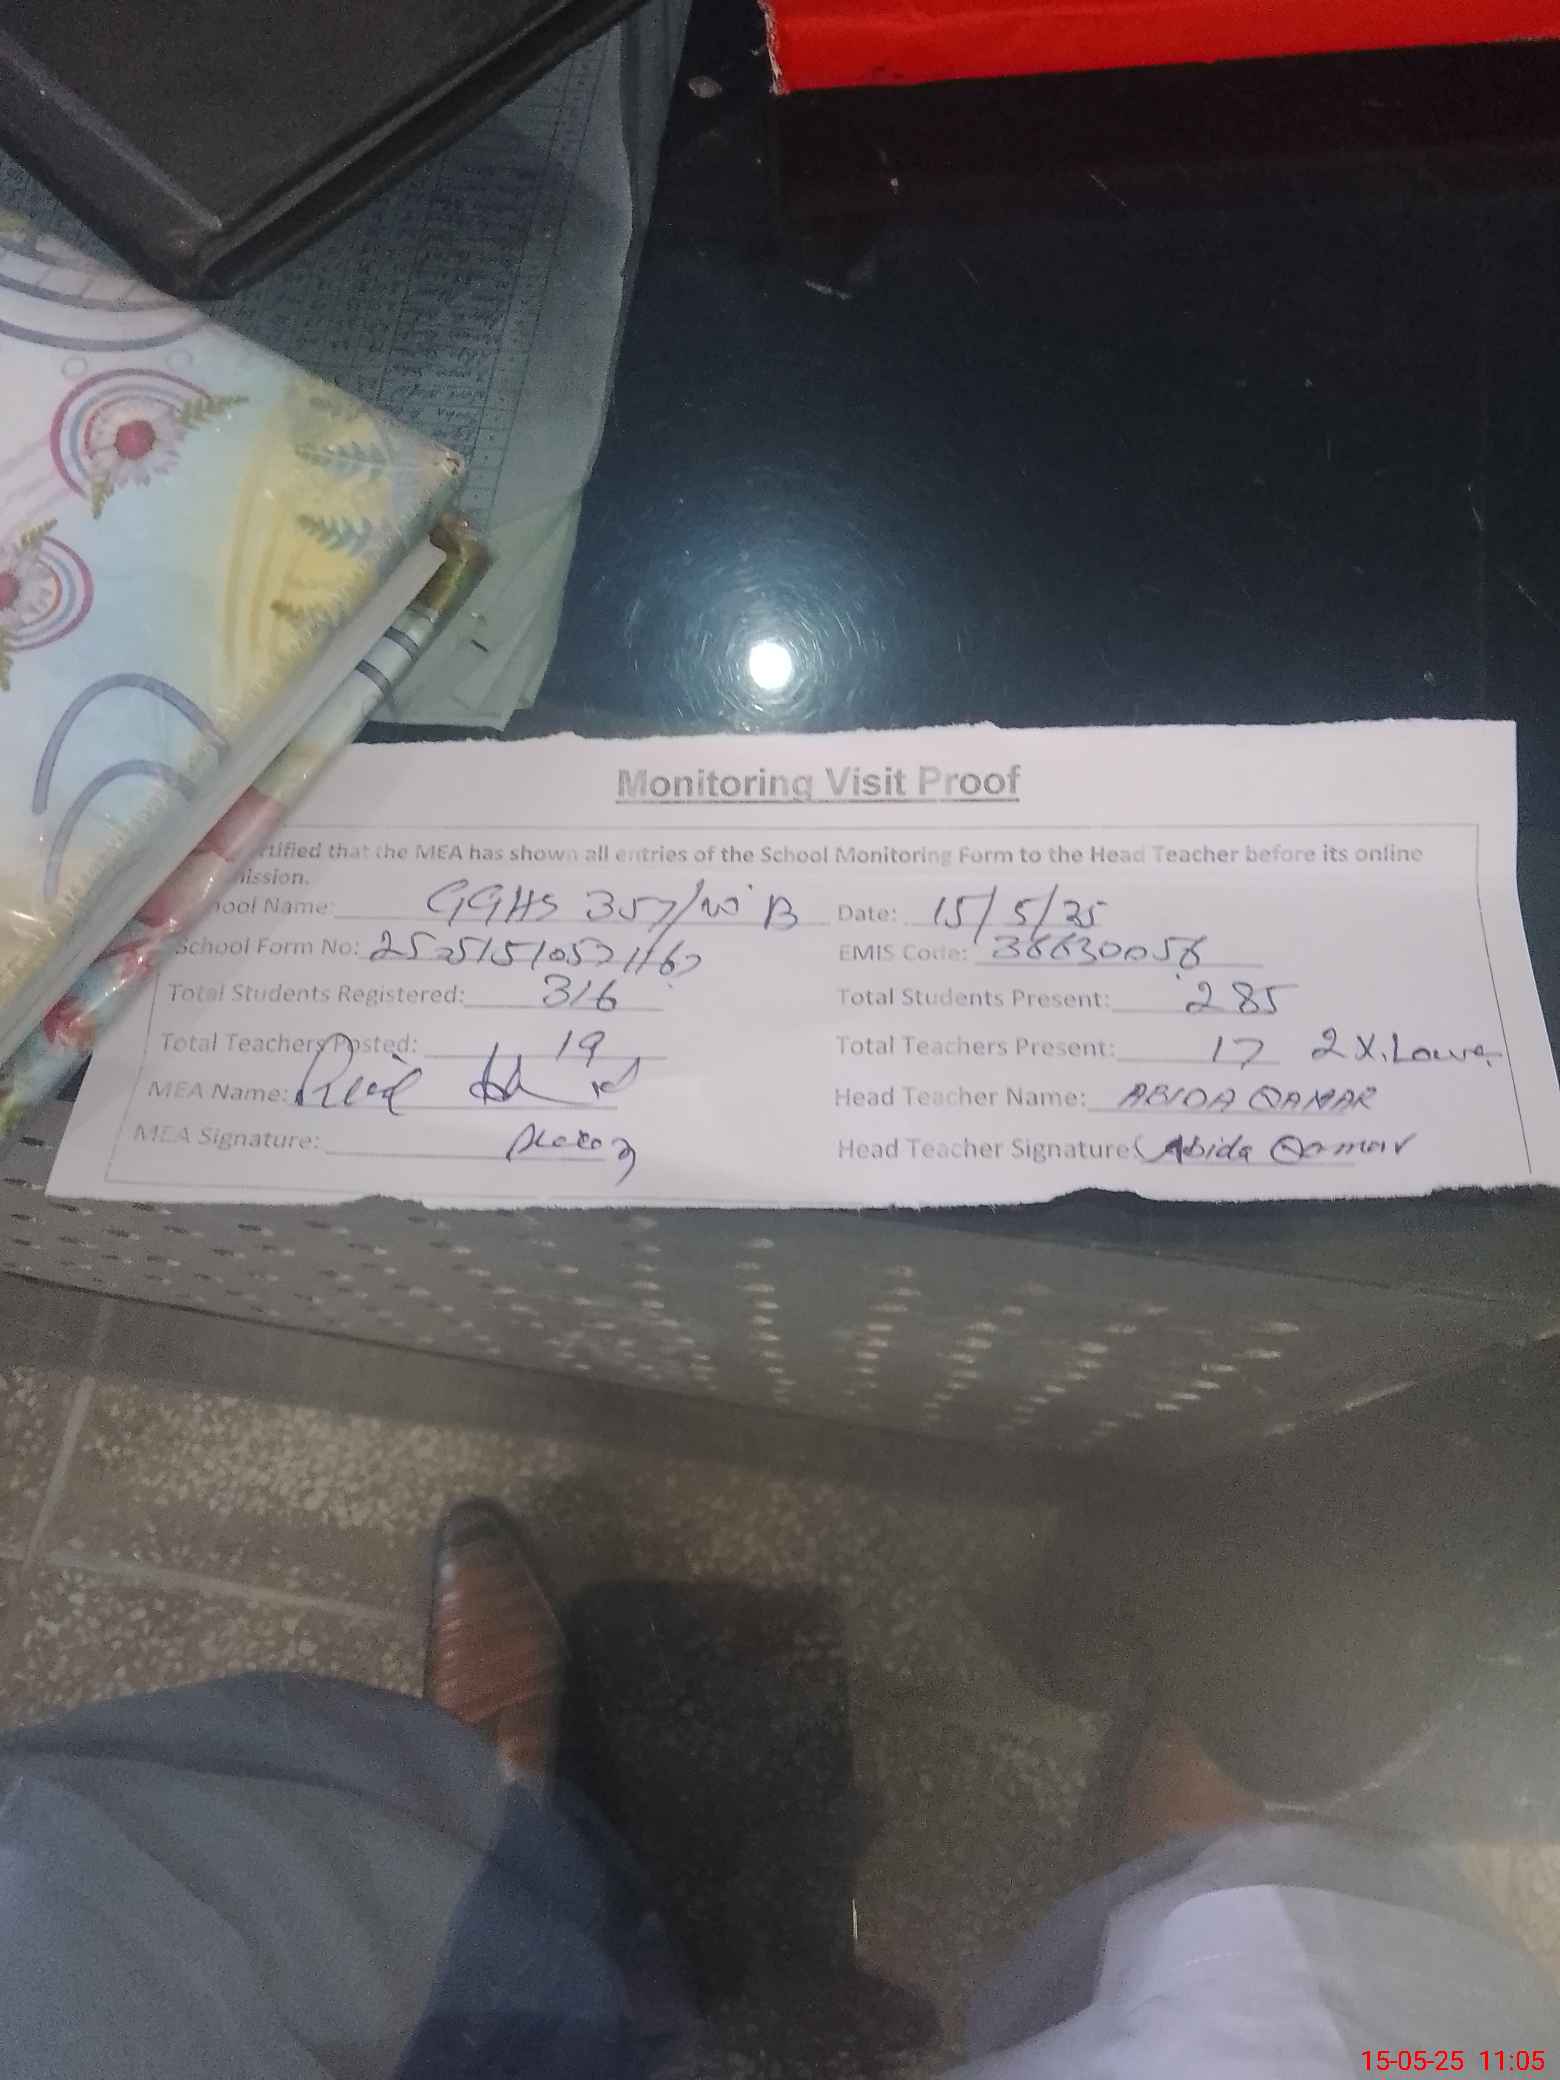 Monitoring Visit Proof
rtified that the MEA has shown all entries of the School Monitoring Form to the Head Teacher before its online
ission.
hool Name: GGHS 357/ B Date: 15/5/25
School Form No: EMIS Code: 36630056
Total Students Registered: 316 Total Students Present: 285
Total Teachers Posted: 19 Total Teachers Present: 17 2 X.
MEA Name: Head Teacher Name: ABIDA QAMAR
MEA Signature: Head Teacher Signature: Abida Qamar
15-05-25 11:05